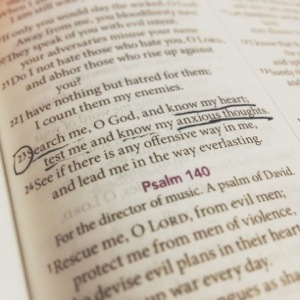 If only you would
Away from me, you bloodthirsty
20 They speak of you with evil intent;
your adversaries misuse your
21 Do I not hate those who hate you, O LORD,
and abhor those who rise up against
you?
22 I have nothing but hatred for them;
I count them my enemies.
23 Search me, O God, and know my heart;
test me and know my anxious thoughts.
24 See if there is any offensive way in me,
and lead me in the way everlasting.
Psalm 140
For the director of music. A psalm of David.
1 Rescue me, O LORD, from evil men;
protect me from men of violence,
devise evil plans in their heart
up war every day.
as shar